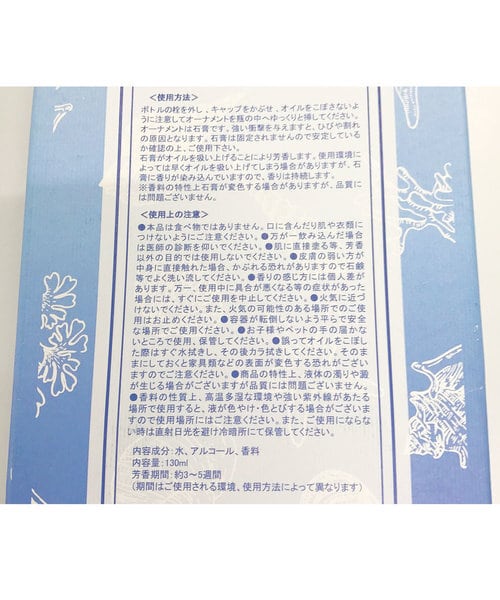 ＜使用方法＞
ボトルの栓を外し、キャップをかぶせ、オイルをこぼさないよ
うに注意してオーナメントを瓶の中へゆっくりと挿してください。
オーナメントは石膏です。強い衝撃を与えますと、ひびや割れ
の原因となります。石膏は固定されませんので安定している
か確認の上、ご使用下さい。
石膏がオイルを吸い上げることにより芳香します。使用環境に
よっては早くオイルを吸い上げてしまう場合がありますが、石
膏に香りが染み込んでいますので、香りは持続します。
※香料の特性上石膏が変色する場合がありますが、品質に
は問題ございません。
＜使用上の注意＞
●本品は食べ物ではありません。口に含んだり肌や衣類に
つけないようにご注意ください。●万が一飲み込んだ場合
は医師の診断を仰いでください。●肌に直接塗る等、芳香
以外の目的では使用しないでください。●皮膚の弱い方が
中身に直接触れた場合、かぶれる恐れがありますので石鹸
等でよく洗い流してください。●香りの感じ方には個人差が
あります。万一、使用中に具合が悪くなる等の症状があった
場合には、すぐにご使用を中止してください。●火気に近づ
けないでください。また、火気の可能性のある場所でのご使
用はお止めください。●容器が転倒しないよう平らで安全
な場所でご使用ください。●お子様やペットの手の届かな
いところで使用、保管してください。●誤ってオイルをこぼし
た際はすぐ水拭きし、その後カラ拭きしてください。そのま
まにしておくと家具類などの表面が変色する恐れがござい
ますのでご注意ください。●商品の特性上、液体の濁りや澱
が生じる場合がございますが品質には問題ございません。
●香料の性質上、高温多湿な環境や強い紫外線があたる
場所で使用すると、液が色やけ・色とびする場合がございま
すので使用場所にはご注意ください。また、ご使用にならな
い時は直射日光を避け冷暗所にて保管してください。
内容成分：水、アルコール、香料
内容量：130ml
芳香期間：約3～5週間
（期間はご使用される環境、使用方法によって異なります）